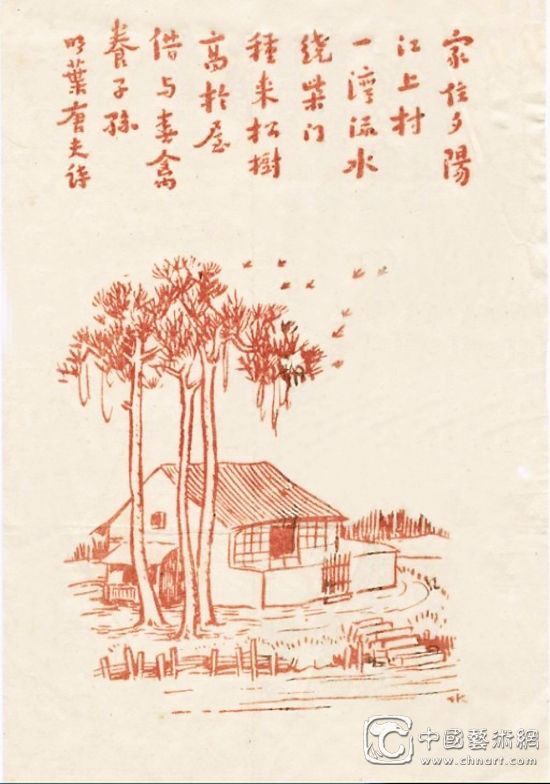 家住夕陽
江上村
一灣流水
绕柴门
種来松樹
高於屋
借与春禽
養子孫
明葉唐夫詩
TK
中國藝術網
www.chnart.com